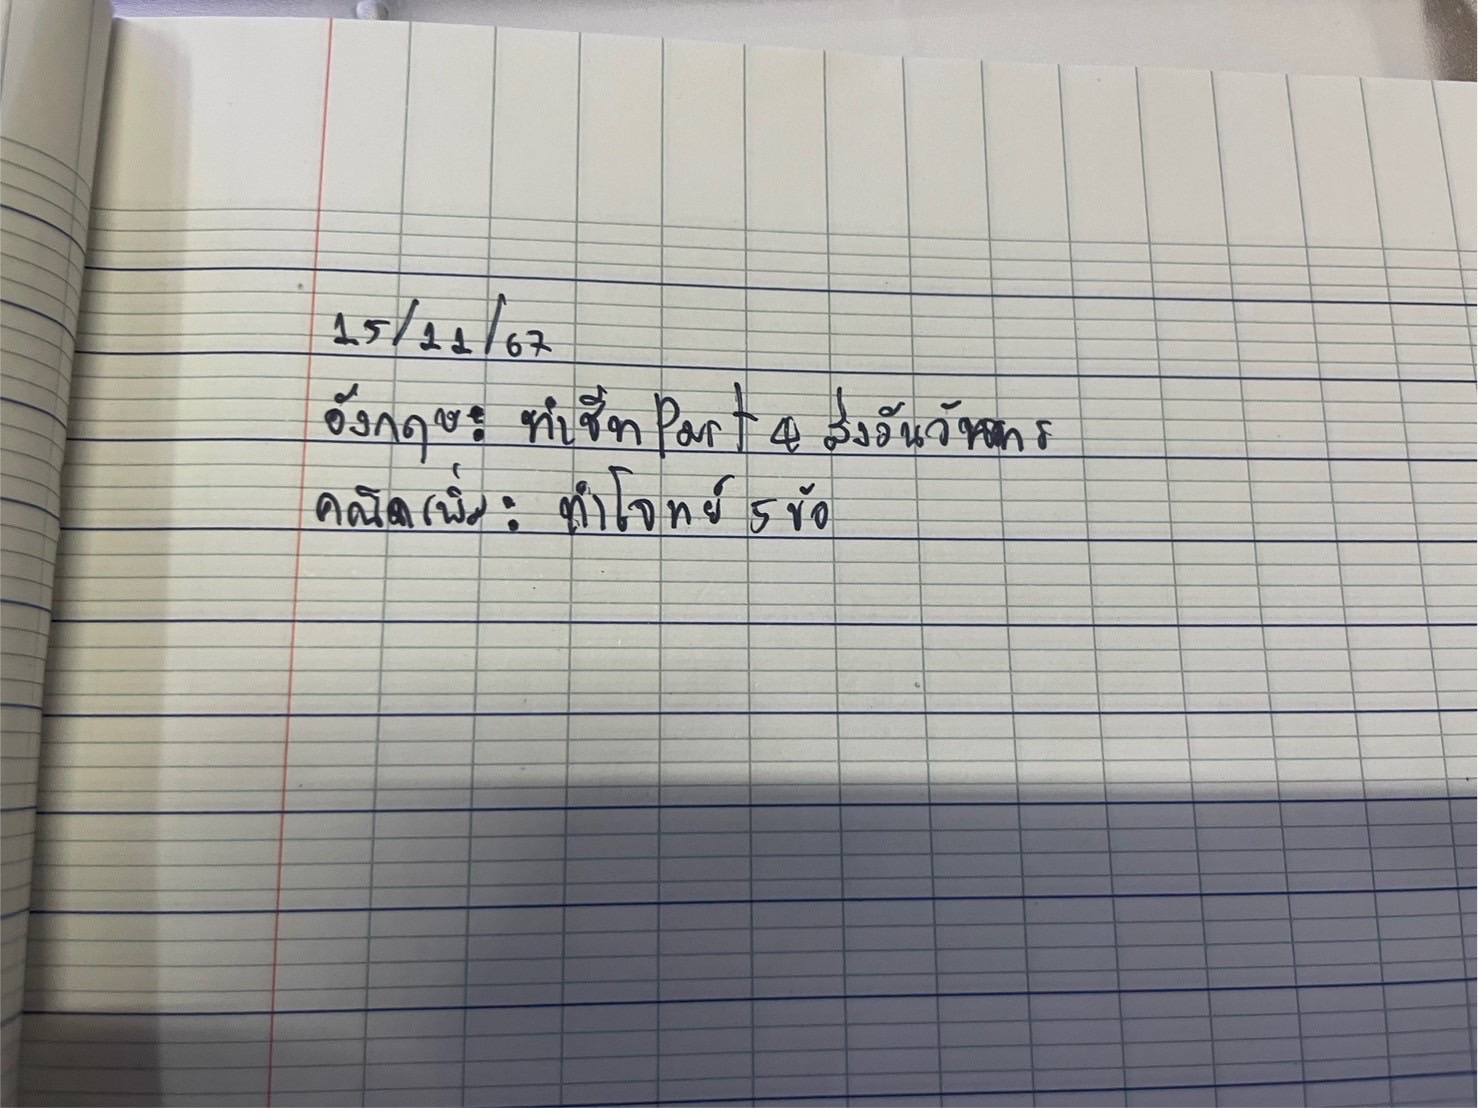 15/11/67
อังกฤษ: ทำชีท Part 4 ส่งวันจันทร
คณิตเพิ่ม: ทำโจทย์ 5 ข้อ